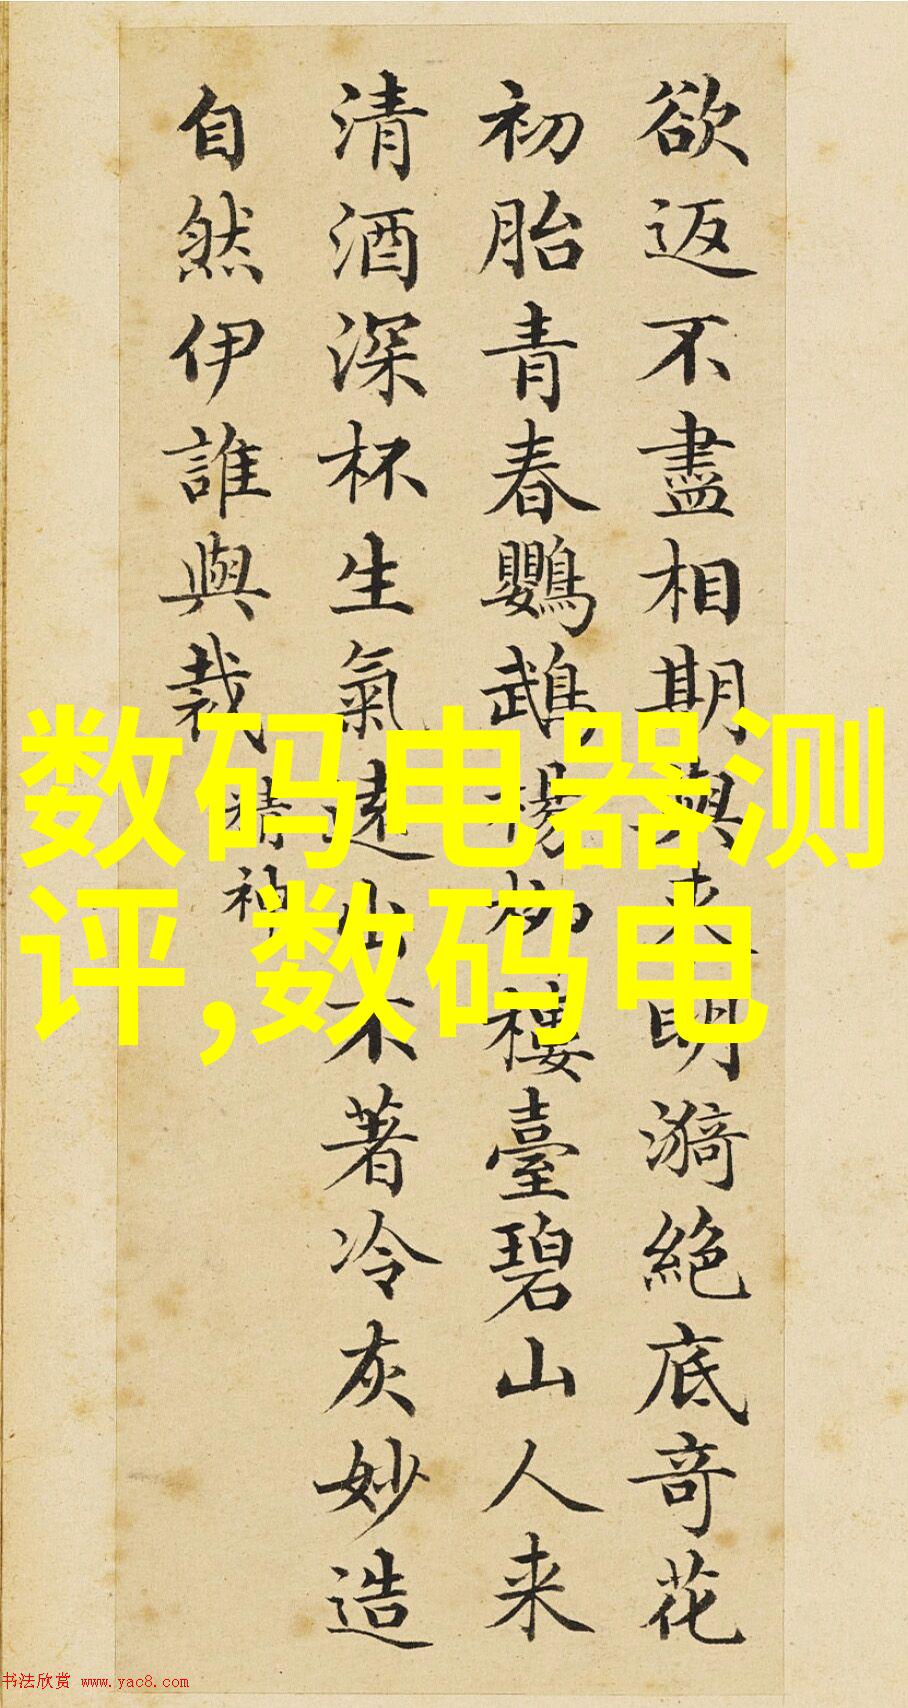 欲返不盡相期與来明漪絕底竒花
初胎青春鸚鵡楊柳樓臺碧山人来
清酒深杯生氣遠出不著冷灰妙造
自然伊誰與裁
精神
数码电器测
评,数码电
书法欣赏 www.yac8.com